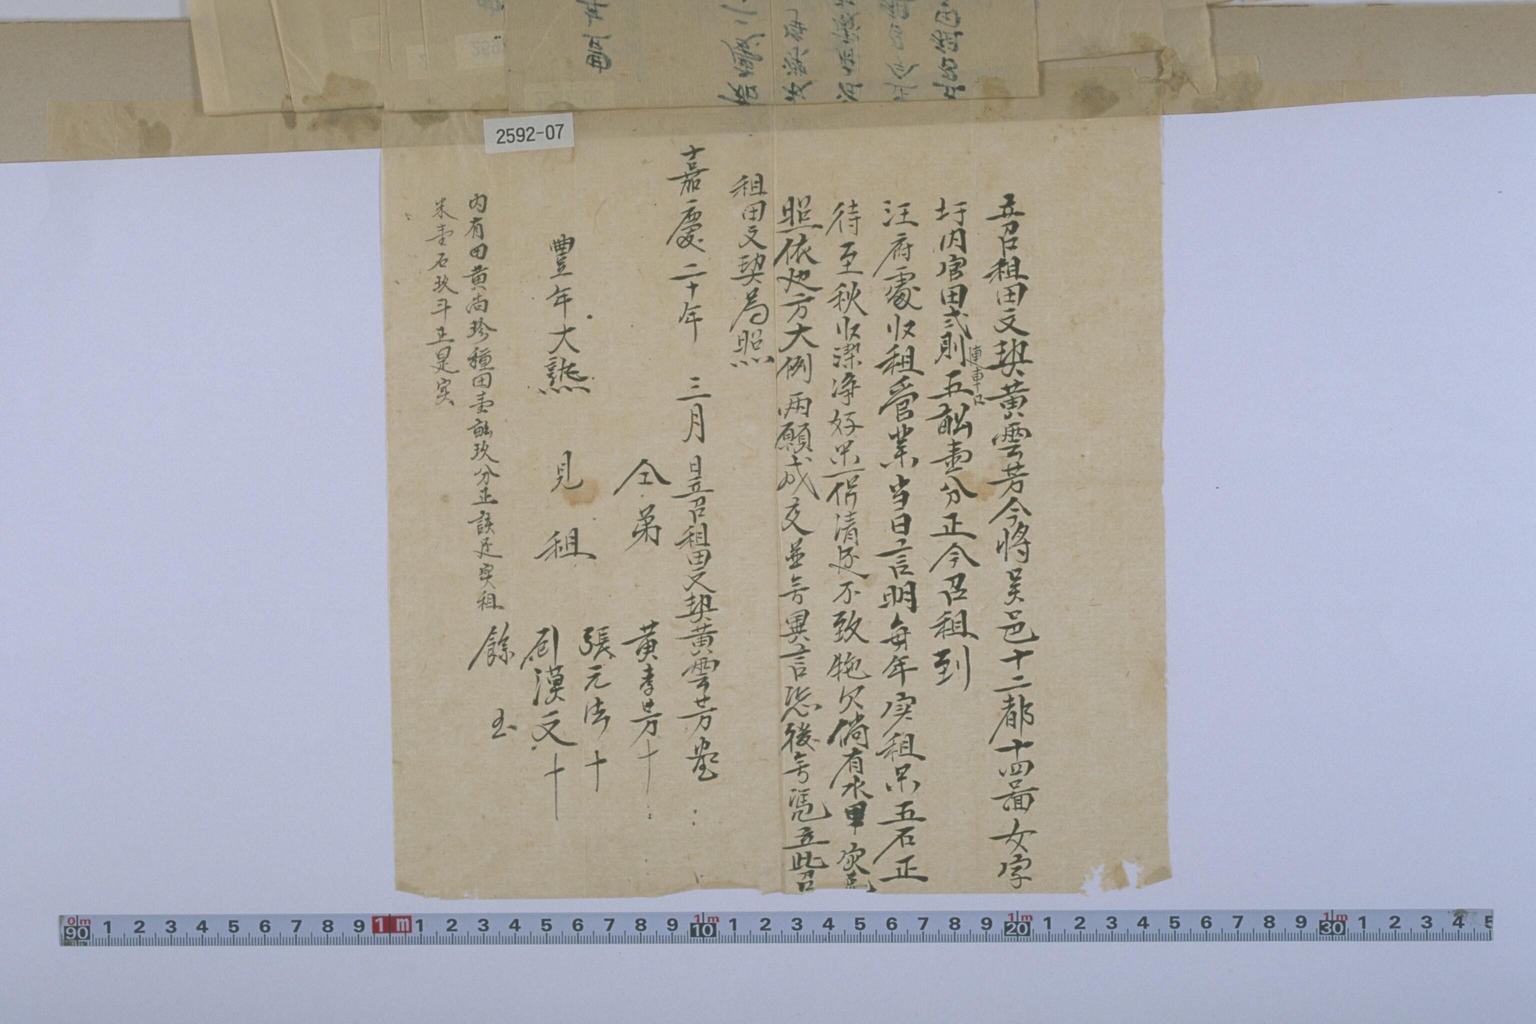 立召租田文契黃雲芳今將吴邑十二都十四啚女字
圩内官田弍則五畝壹分正今召租到
連車口
汪府處收租管業当日言明每年实租米五石正
待至秋收潔淨好米一併清足不致拖欠倘有水旱灾
照依地方大例两願成交並無異言恐後無憑立此召
租田文契為照
嘉慶二十年 三月 日立召租田文契黃雲芳
仝弟 黃孝芳十
豐年大熟 見租 張元法十
漢文十
餘玉
内有田黃尚珍種田壹畝玖分正該足实租
米壹石玖斗正是实
2592-07